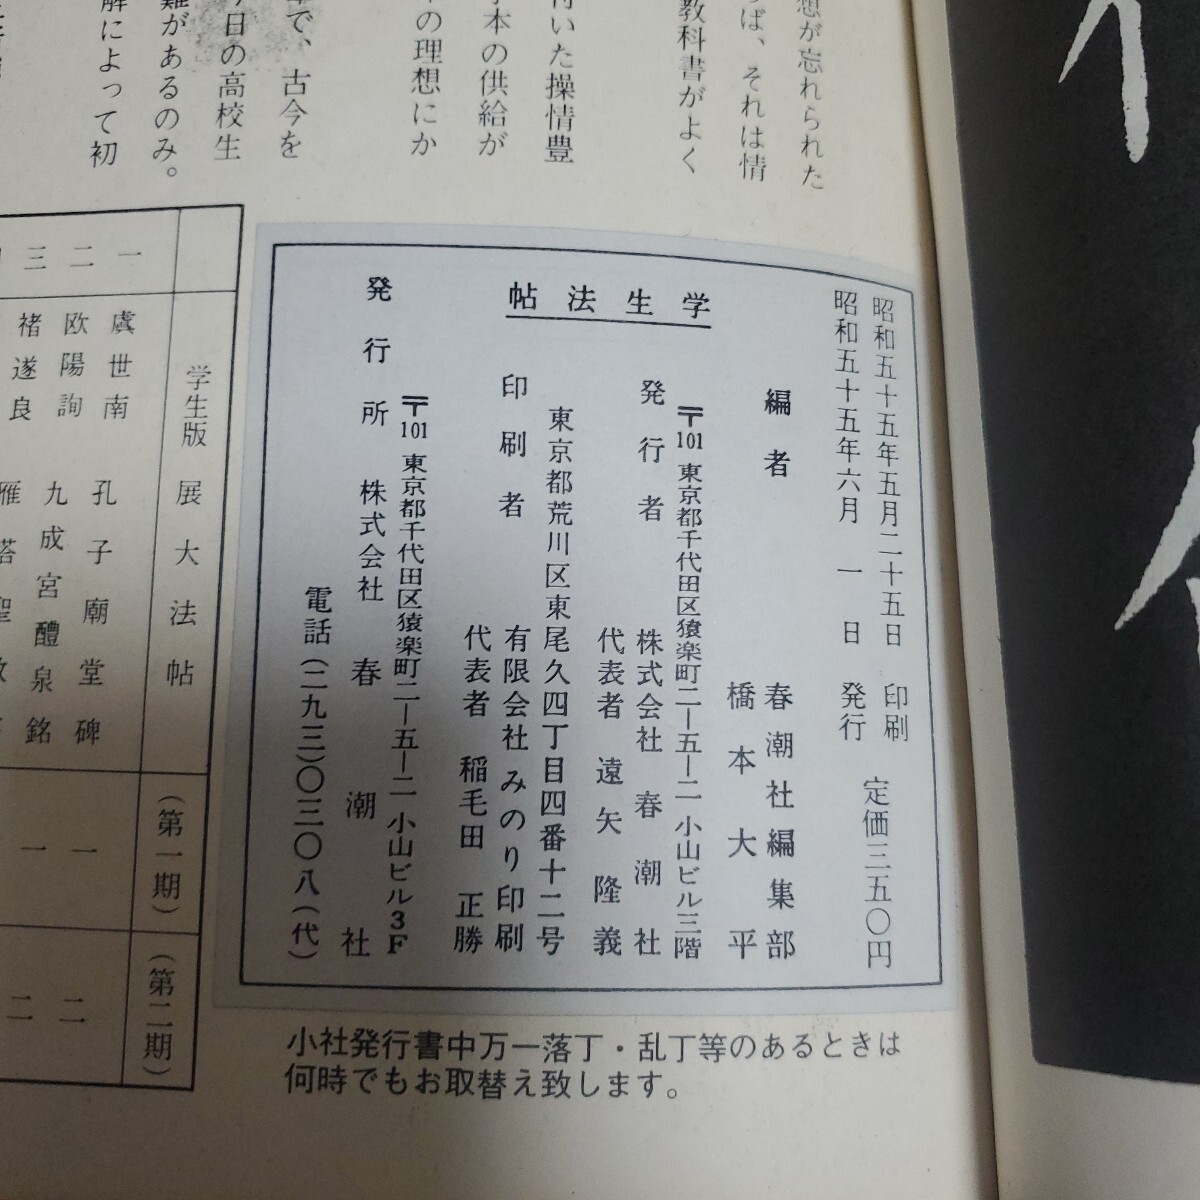 想が忘れられた
ば、それは情
教科書がよく
いた操情豊
本の供給が
の理想にか
で、古今を
日の高校生
難があるのみ。
解によって初
昭和五十五年五月二十五日 印刷
昭和五十五年六月 一 日 発行
定価三五〇円
学生法帖
編者 春潮社編集部
橋本大平
〒101 東京都千代田区猿楽町二ー五ー二 小山ビル三階
発行者 株式会社 春潮社
代表者 遠矢隆義
東京都荒川区東尾久四丁目四番十二号
印刷者 有限会社みのり印刷
代表者 稲毛田 正勝
〒101 東京都千代田区猿楽町二ー五ー二 小山ビル3F
発行所 株式会社 春潮社
電話(二九三)〇三〇八(代)
小社発行書中万一落丁・乱丁等のあるときは
何時でもお取替え致します。
学生版 展大法帖 (第一期) (第二期)
一 虞世南 孔子廟堂碑 一 二
二 欧陽詢 九成宮醴泉銘 一 二
三 褚遂良 雁塔聖教